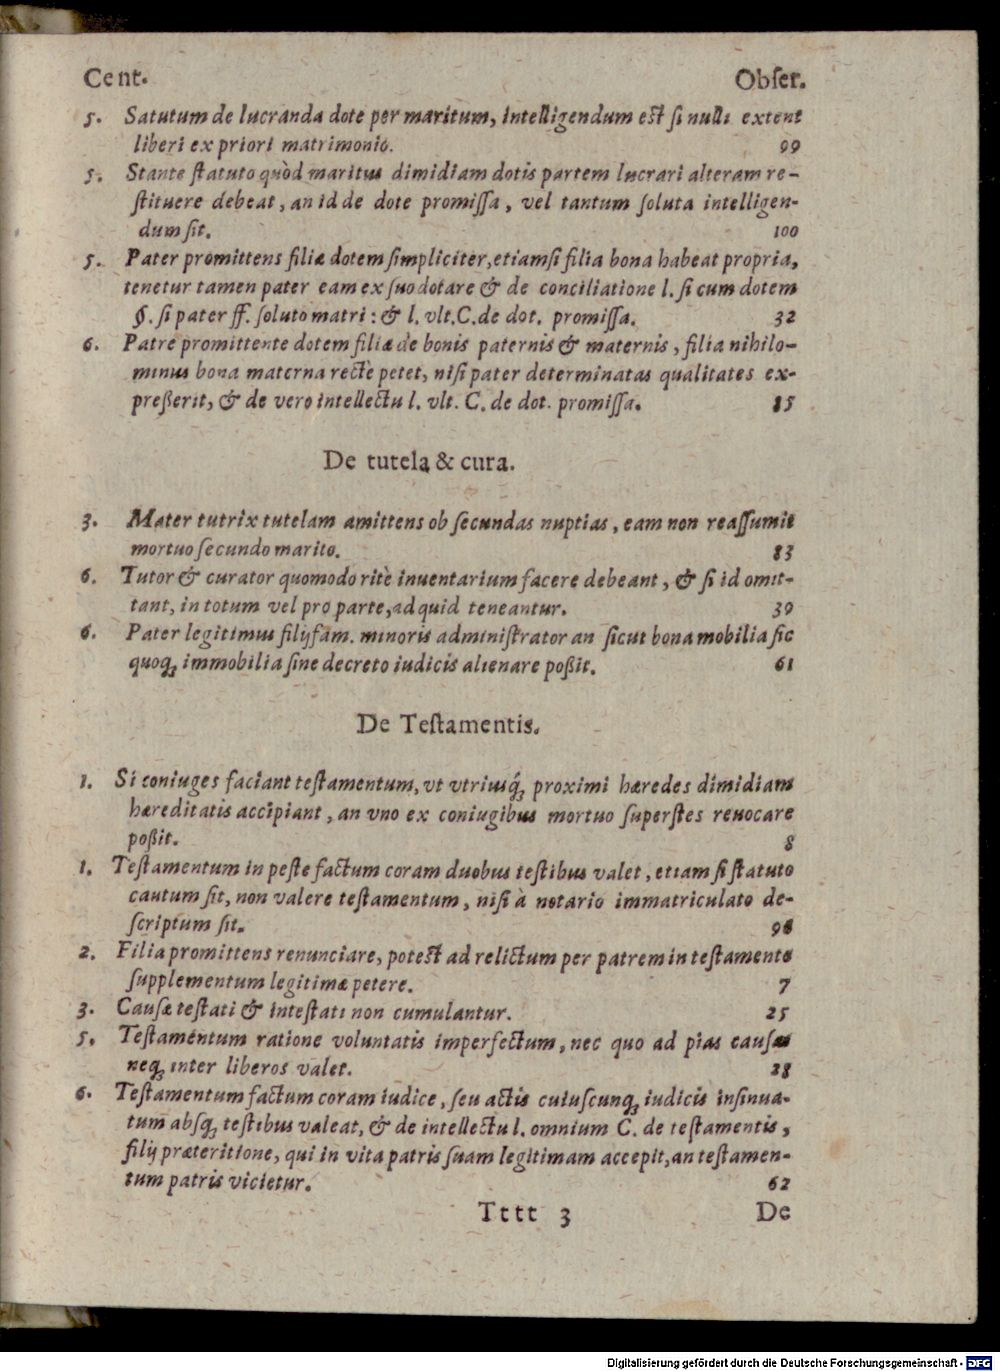 Cent. Obſer.
5. Satutum de lucranda dote per maritum, intelligendum eſt ſi nulli extent
liberi ex priori matrimonio. 99
5. Stante ſtatuto quòd maritus dimidiam dotis partem lucrari alteram re-
ſtituere debeat, an id de dote promiſſa, vel tantum ſoluta intelligen-
dum ſit. 100
5. Pater promittens filiæ dotem ſimpliciter, etiamſi filia bona habeat propria,
tenetur tamen pater eam ex ſuo dotare & de conciliatione l. ſi cum dotem
§. ſi pater ff. ſoluto matri: & l. vlt. C. de dot. promiſſa. 32
6. Patre promittente dotem filiæ de bonis paternis & maternis, filia nihilo-
minus bona materna rectè petet, niſi pater determinatas qualitates ex-
preßerit, & de vero intellectu l. vlt. C. de dot. promiſſa. 85
De tutela & cura.
3. Mater tutrix tutelam amittens ob ſecundas nuptias, eam non reaſſumit
mortuo ſecundo marito. 83
6. Tutor & curator quomodo ritè inuentarium facere debeant, & ſi id omit-
tant, in totum vel pro parte, ad quid teneantur. 39
6. Pater legitimus filijfam. minoris adminiſtrator an ſicut bona mobilia ſic
quoq; immobilia ſine decreto iudicis alienare poßit. 61
De Teſtamentis.
1. Si coniuges faciant teſtamentum, vt vtriusq́; proximi hæredes dimidiam
hæreditatis accipiant, an vno ex coniugibus mortuo ſuperſtes reuocare
poßit. 8
1. Teſtamentum in peſte factum coram duobus teſtibus valet, etiam ſi ſtatuto
cautum ſit, non valere teſtamentum, niſi à notario immatriculato de-
ſcriptum ſit. 98
2. Filia promittens renunciare, poteſt ad relictum per patrem in teſtamento
ſupplementum legitimæ petere. 7
3. Cauſæ teſtati & inteſtati non cumulantur. 25
5. Teſtamentum ratione voluntatis imperfectum, nec quo ad pias cauſas
neq; inter liberos valet. 28
6. Teſtamentum factum coram iudice, ſeu actis cuiuſcunq; iudicis inſinua-
tum abſq; teſtibus valeat, & de intellectu l. omnium C. de teſtamentis,
filij præteritione, qui in vita patris ſuam legitimam accepit, an teſtamen-
tum patris vicietur. 62
Tttt 3 De
Digitalisierung gefördert durch die Deutsche Forschungsgemeinschaft - DFG